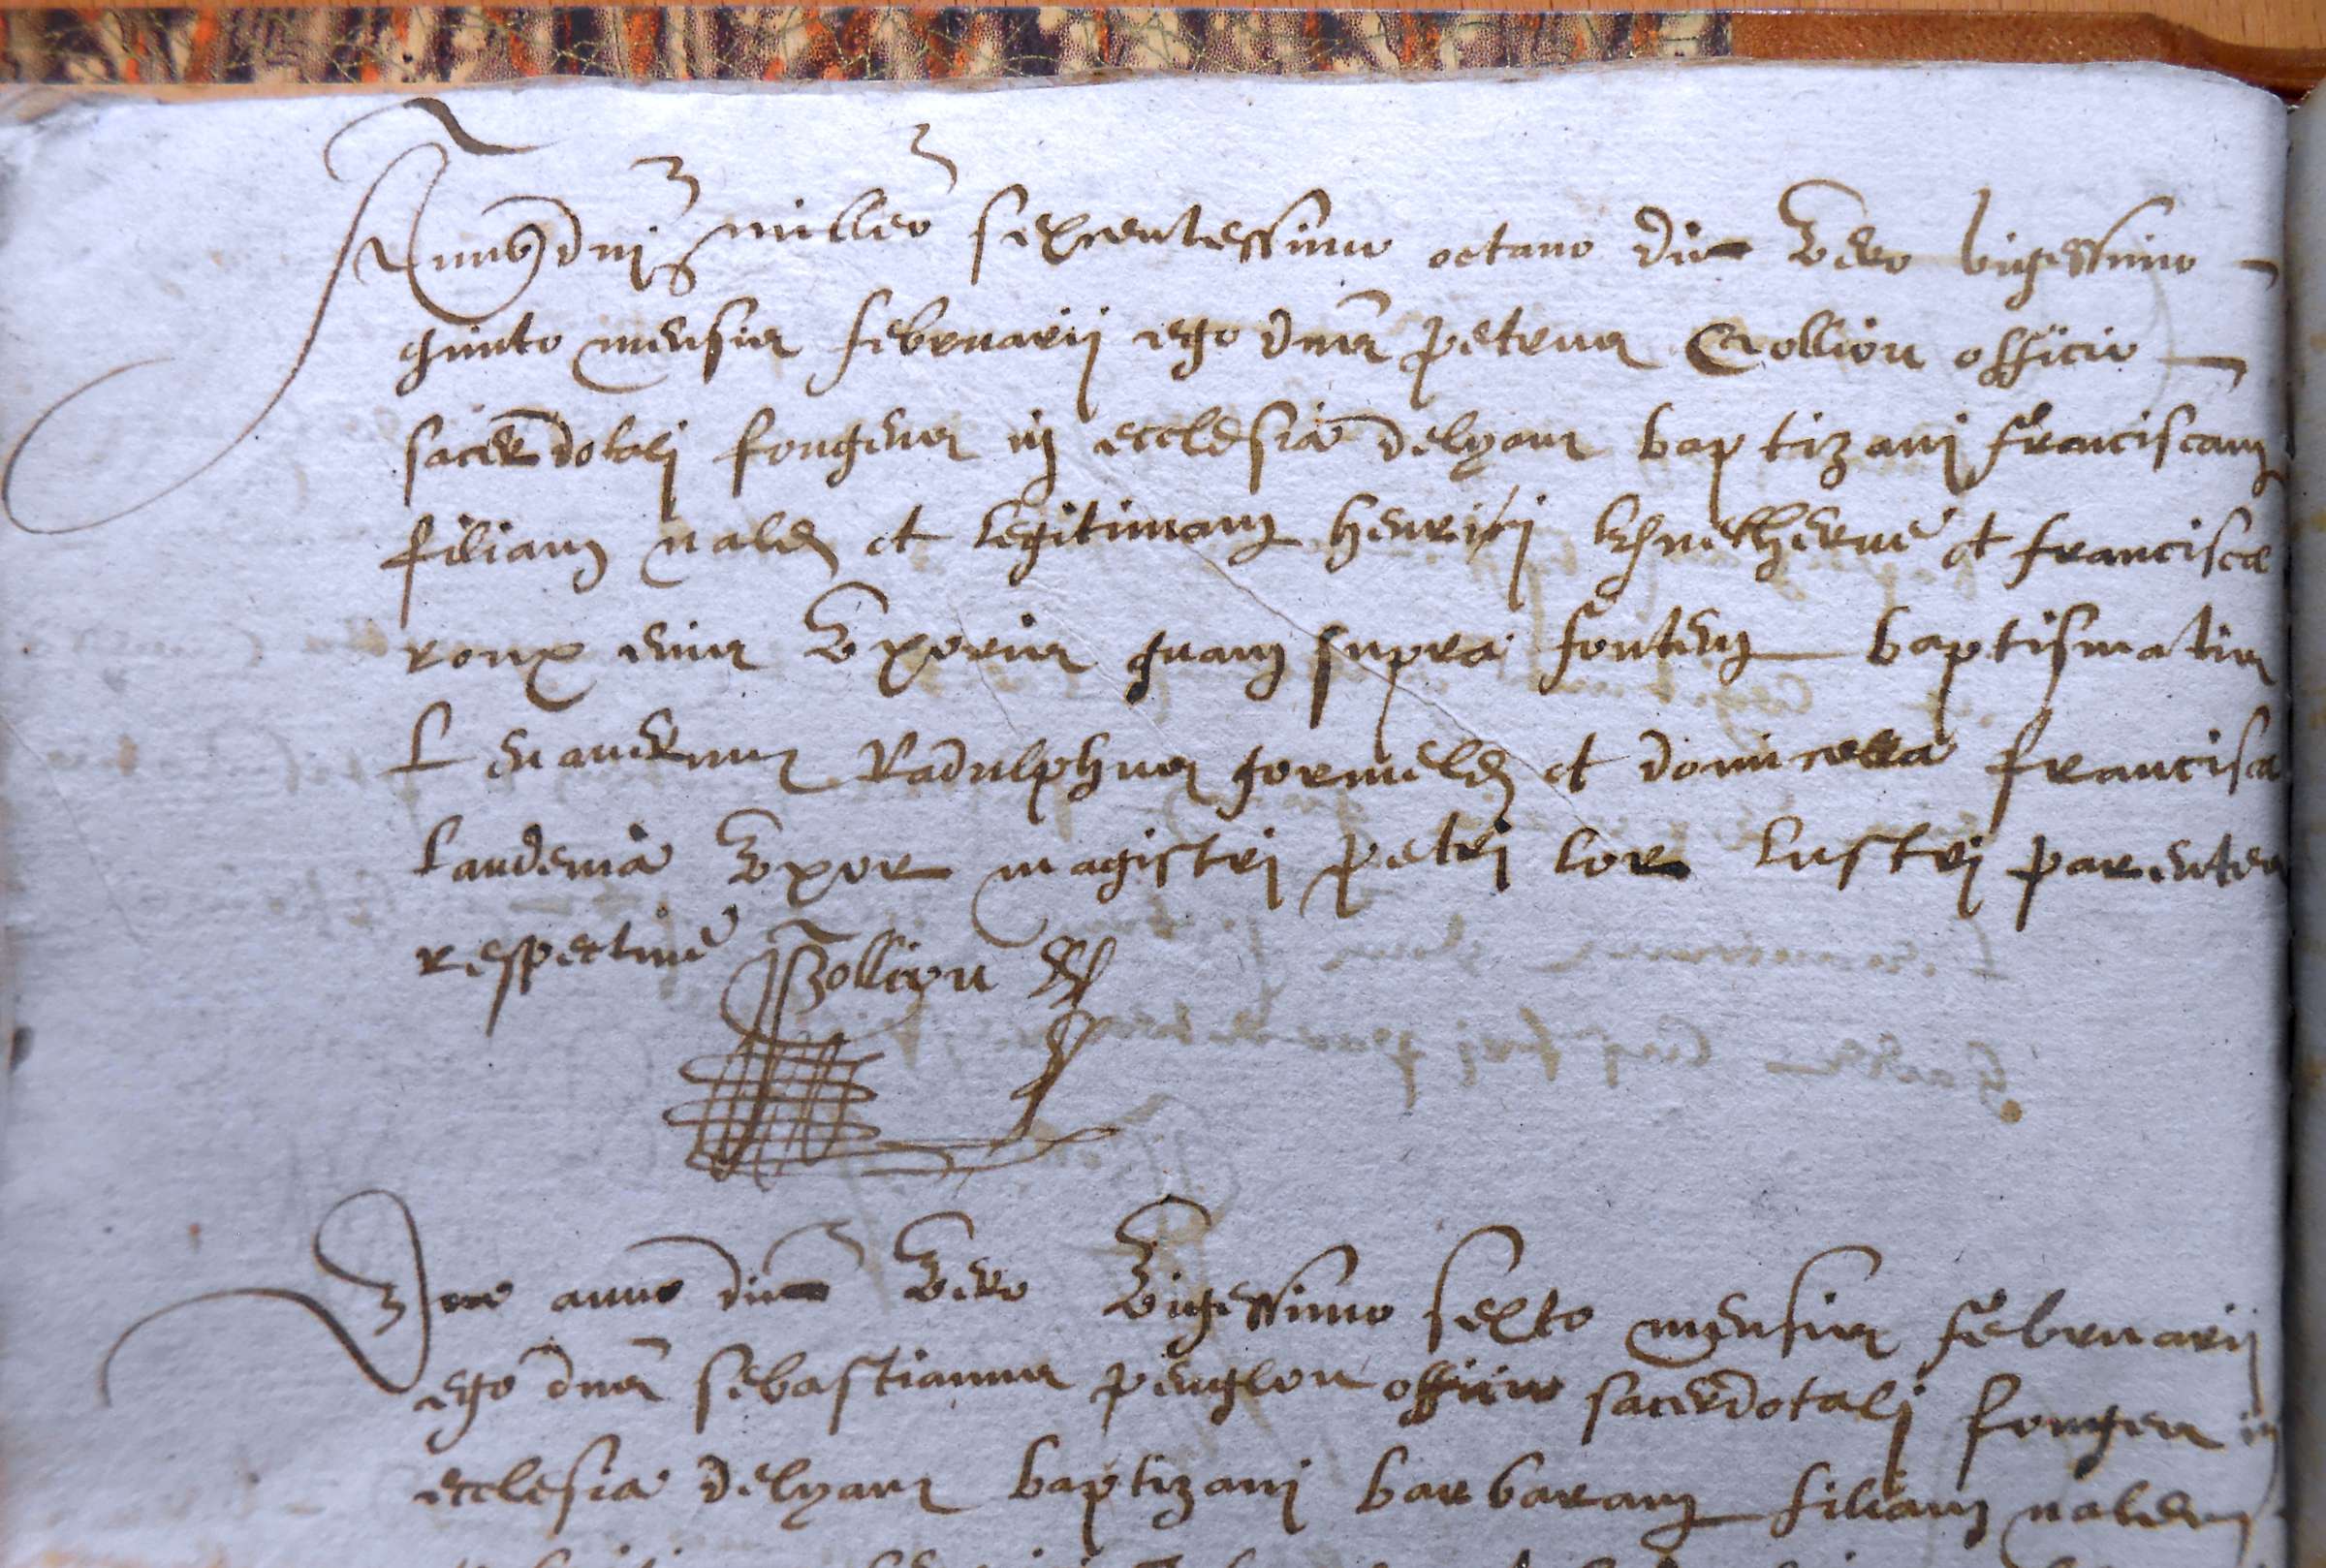 Anno dni milleo sexcentessimo octavo die vero vigessimo
quinto mensis februarii ego dnus petrus Rollion officio
sacerdotali fongens in ecclesia delyau baptizavi franciscam
filiam nalem et legitimam henrici et francisca
roux eius uxoris quam supra fontem baptismatis
Levaverunt Radulphus et domicella francisca
Laudenia uxor magistri petri lustri parentes
respective Rollion
Die anno die vero vigessimo sexto mensis februarii
ego dnus sebastianus penglou officio sacerdotali fongens in
ecclesia delyau baptizavi barbaram filiam nalem